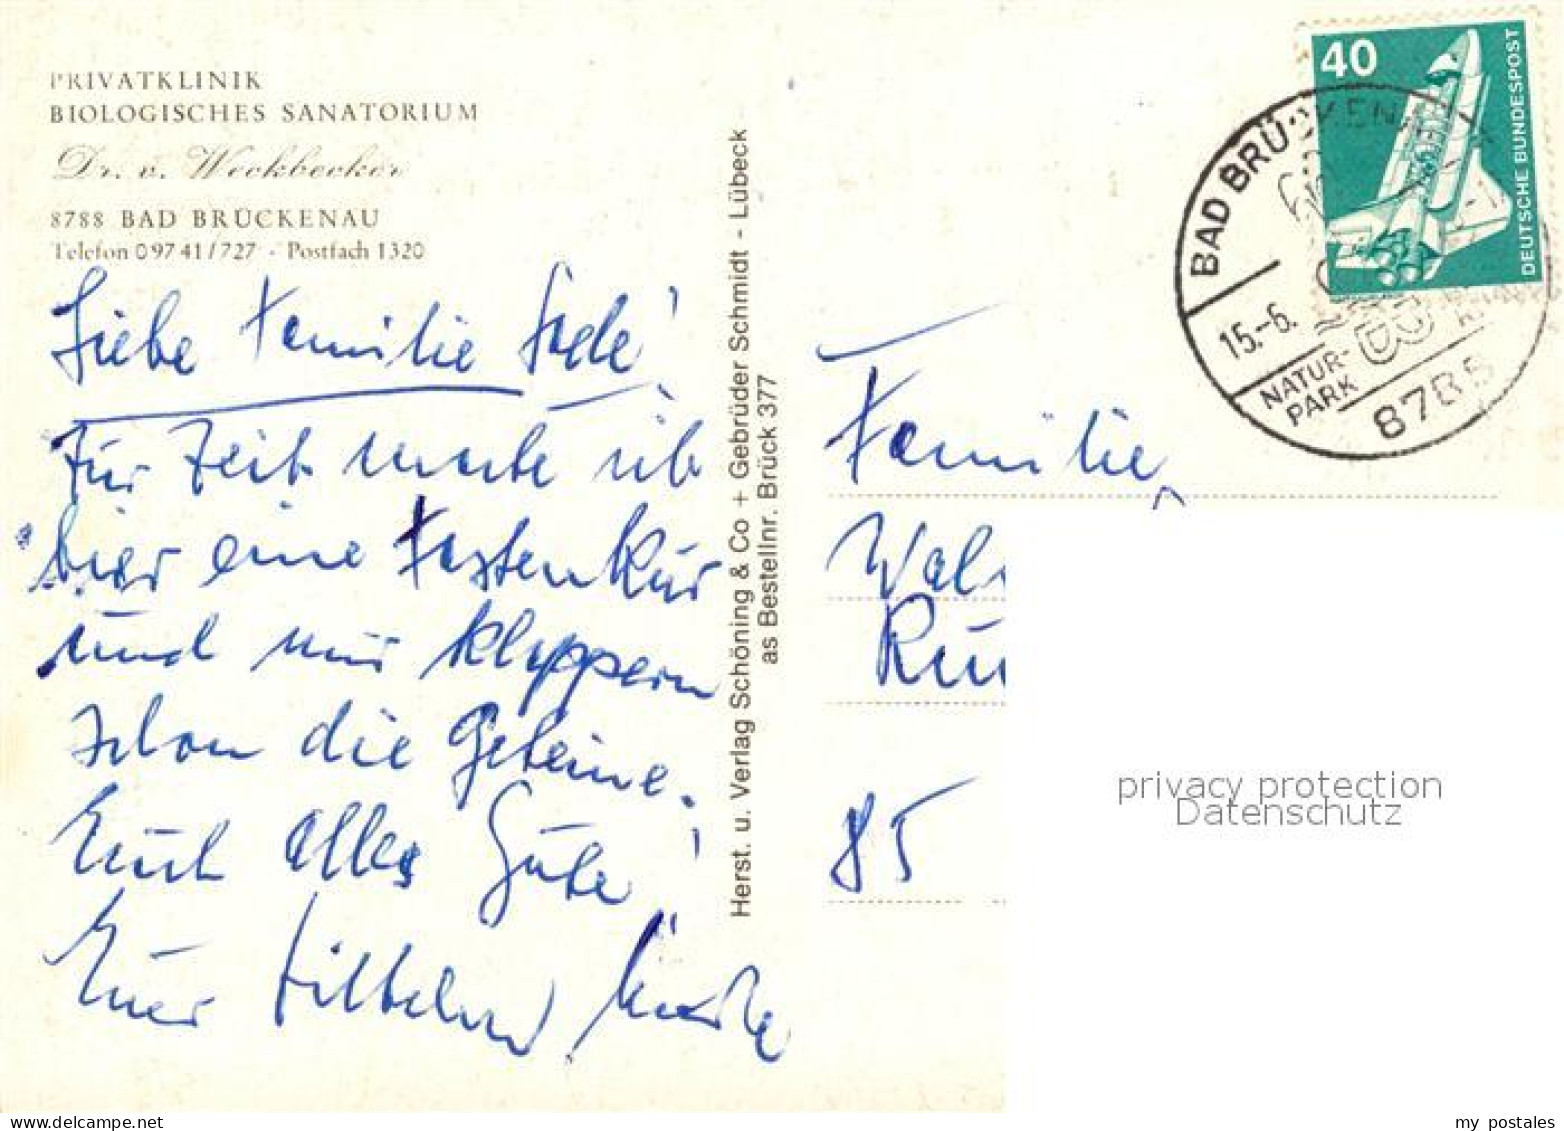 PRIVATKLINIK
BIOLOGISCHES SANATORIUM
Dr. v. Weckbecker
8788 BAD BRÜCKENAU
Telefon 09741/727 - Postfach 1320
Liebe Familie
Zur Zeit mache ich
hier eine Fastenkur
und mir klappern
schon die Gebeine.
Euch alles Gute!
Euer
Herst. u. Verlag Schöning & Co + Gebrüder Schmidt - Lübeck
as Bestellnr. Brück 377
40
DEUTSCHE BUNDESPOST
BAD BRÜCKENAU
15.-6.
NATUR-
PARK
8788
Familie
85
privacy protection
Datenschutz
my postales